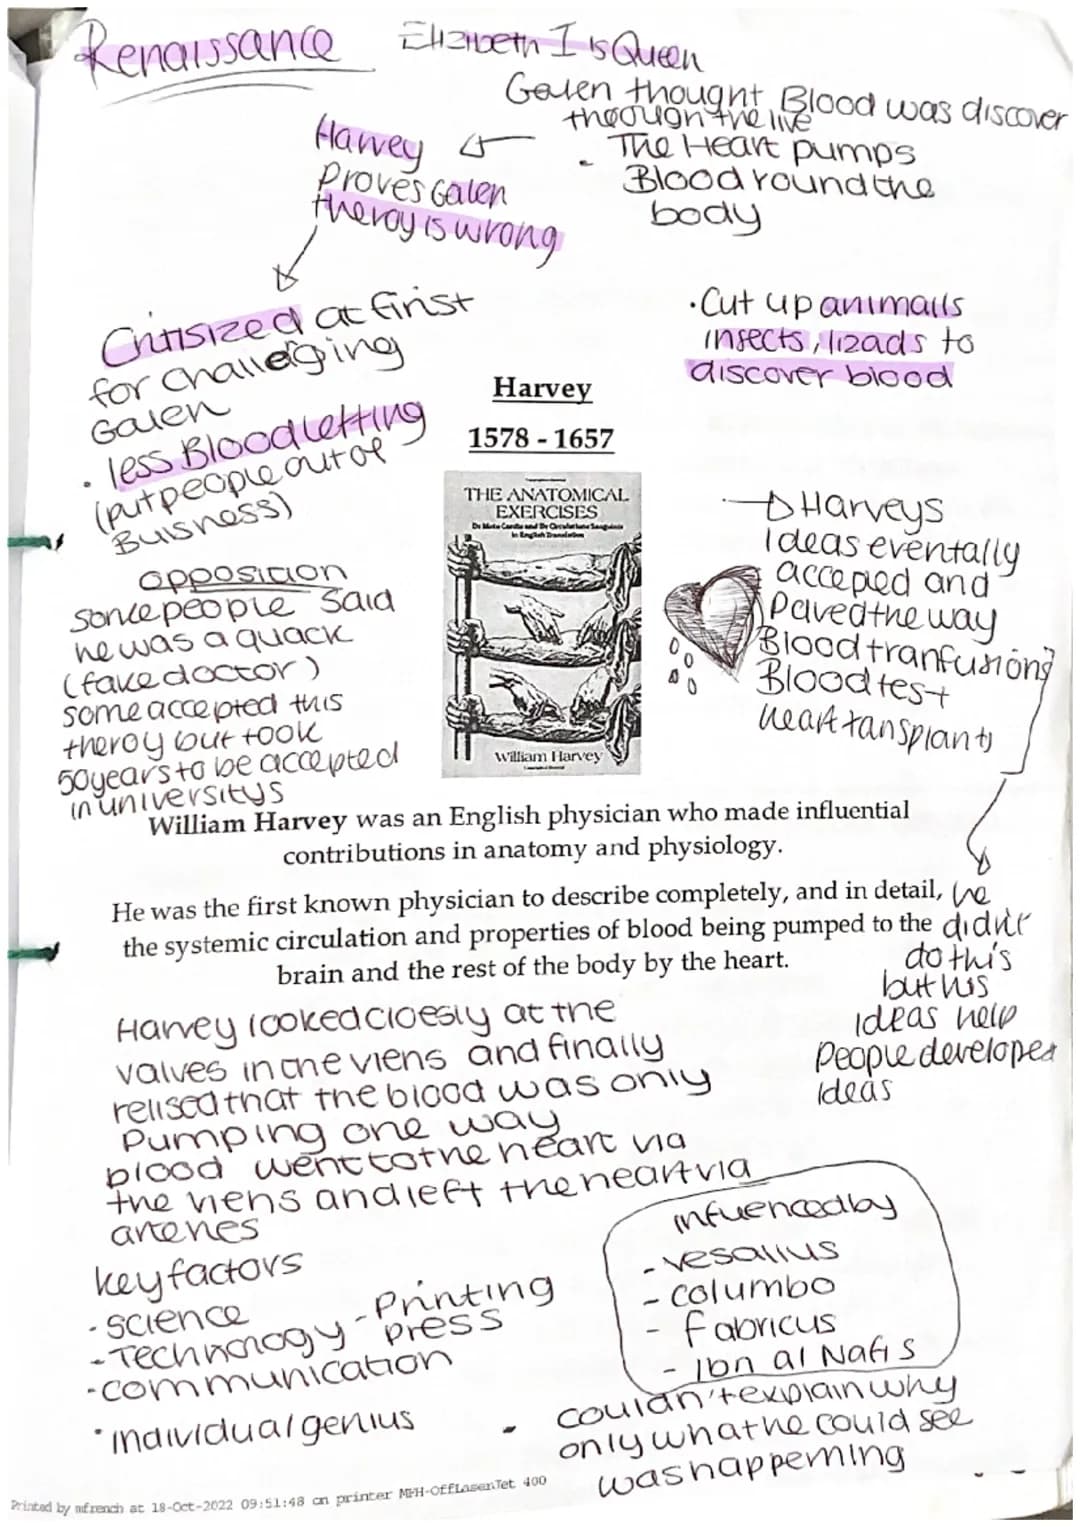 Renaissance
Elizibeth I is Queen
Galen thought Blood was discover
through the live
Harvey
Proves Galen
theroy is wrong
- The Heart pumps
Blood round the
body
Critisized at first
for challeging
Galen
• less Bloodletting
(put people out of
Buisness)
• Cut up animalls
insects, lizads to
discover blood
Harvey
1578 - 1657
THE ANATOMICAL
EXERCISES
De Motu Cordis and De Circulatione Sanguinis
in English Translation
William Harvey
opposition
some people said
he was a quack
(fake doctor)
some accepted this
theroy but took
50 years to be accepted
in universitys
Harveys
Ideas eventally
acceped and
Paved the way
Blood tranfusions
Blood test
heart tansplants
William Harvey was an English physician who made influential
contributions in anatomy and physiology.
He was the first known physician to describe completely, and in detail,
the systemic circulation and properties of blood being pumped to the
brain and the rest of the body by the heart.
he
didn't
do this
but his
Ideas help
People developed
Ideas
Harvey looked cloesly at the
valves in the viens and finally
relised that the blood was only
Pumping one way
blood went to the heart via
the viens and left the heart via
arteries
key factors
- science
- Technology - Printing
press
- communication
• individual genius
infuenced by
- vesalius
- columbo
- fabricus
- Ibn al Nafis
- couldn't explain why
only what he could see
was happerning
Printed by mfrench at 18-Oct-2022 09:51:48 on printer MFH-OffLaserJet 400